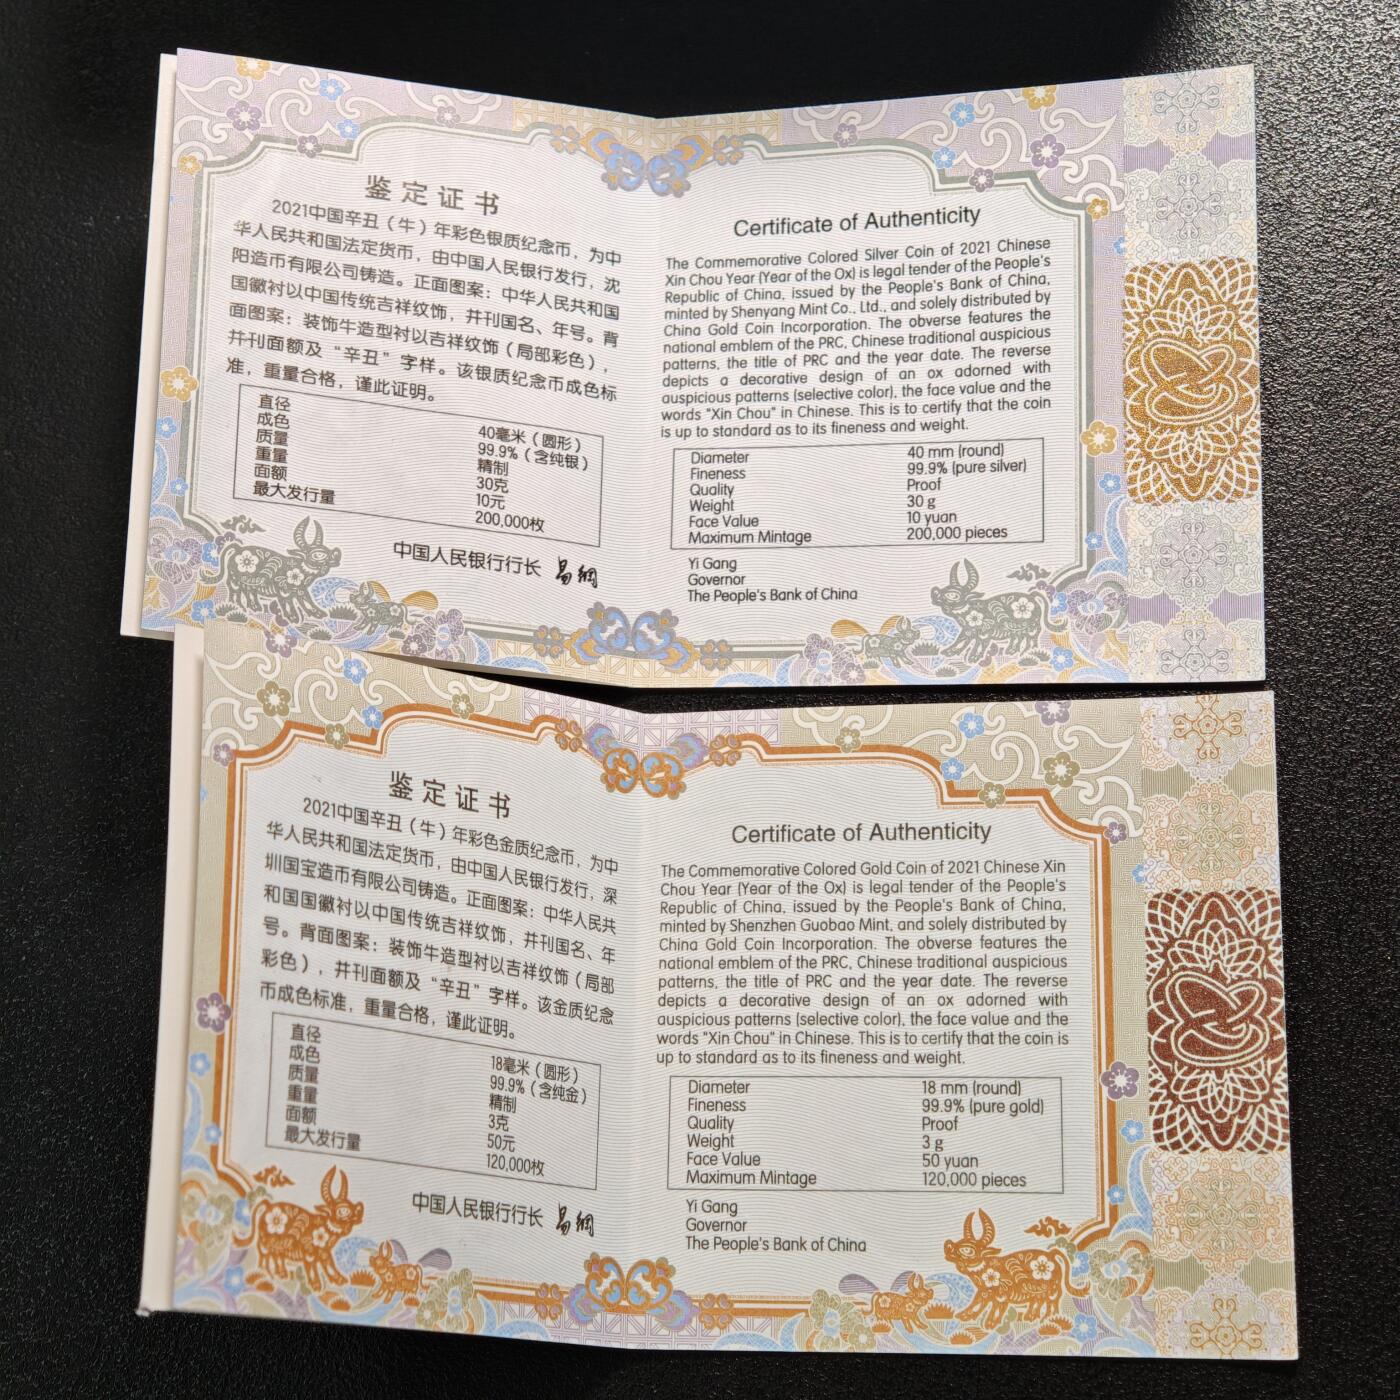 鉴定证书
2021中国辛丑（牛）年彩色银质纪念币，为中
华人民共和国法定货币，由中国人民银行发行，沈
阳造币有限公司铸造。正面图案：中华人民共和国
国徽衬以中国传统吉祥纹饰，并刊国名、年号。背
面图案：装饰牛造型衬以吉祥纹饰（局部彩色），
并刊面额及“辛丑”字样。该银质纪念币成色标
准，重量合格，谨此证明。
直径 40毫米（圆形）
成色 99.9%（含纯银）
质量 精制
重量 30克
面额 10元
最大发行量 200,000枚
中国人民银行行长 易纲
Certificate of Authenticity
The Commemorative Colored Silver Coin of 2021 Chinese
Xin Chou Year (Year of the Ox) is legal tender of the People's
Republic of China, issued by the People's Bank of China,
minted by Shenyang Mint Co., Ltd., and solely distributed by
China Gold Coin Incorporation. The obverse features the
national emblem of the PRC, Chinese traditional auspicious
patterns, the title of PRC and the year date. The reverse
depicts a decorative design of an ox adorned with
auspicious patterns (selective color), the face value and the
words “Xin Chou” in Chinese. This is to certify that the coin
is up to standard as to its fineness and weight.
Diameter 40 mm (round)
Fineness 99.9% (pure silver)
Quality Proof
Weight 30 g
Face Value 10 yuan
Maximum Mintage 200,000 pieces
Yi Gang
Governor
The People's Bank of China
鉴定证书
2021中国辛丑（牛）年彩色金质纪念币，为中
华人民共和国法定货币，由中国人民银行发行，深
圳国宝造币有限公司铸造。正面图案：中华人民共
和国国徽衬以中国传统吉祥纹饰，并刊国名、年
号。背面图案：装饰牛造型衬以吉祥纹饰（局部
彩色），并刊面额及“辛丑”字样。该金质纪念
币成色标准，重量合格，谨此证明。
直径 18毫米（圆形）
成色 99.9%（含纯金）
质量 精制
重量 3克
面额 50元
最大发行量 120,000枚
中国人民银行行长 易纲
Certificate of Authenticity
The Commemorative Colored Gold Coin of 2021 Chinese Xin
Chou Year (Year of the Ox) is legal tender of the People's
Republic of China, issued by the People's Bank of China,
minted by Shenzhen Guobao Mint, and solely distributed by
China Gold Coin Incorporation. The obverse features the
national emblem of the PRC, Chinese traditional auspicious
patterns, the title of PRC and the year date. The reverse
depicts a decorative design of an ox adorned with
auspicious patterns (selective color), the face value and the
words “Xin Chou” in Chinese. This is to certify that the coin is
up to standard as to its fineness and weight.
Diameter 18 mm (round)
Fineness 99.9% (pure gold)
Quality Proof
Weight 3 g
Face Value 50 yuan
Maximum Mintage 120,000 pieces
Yi Gang
Governor
The People's Bank of China